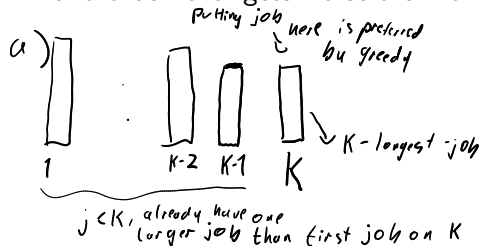 putting job
here is preferred
by greedy
a)
K-longest-job
1 K-2 K-1 K
j<K, already have one
larger job than first job on K